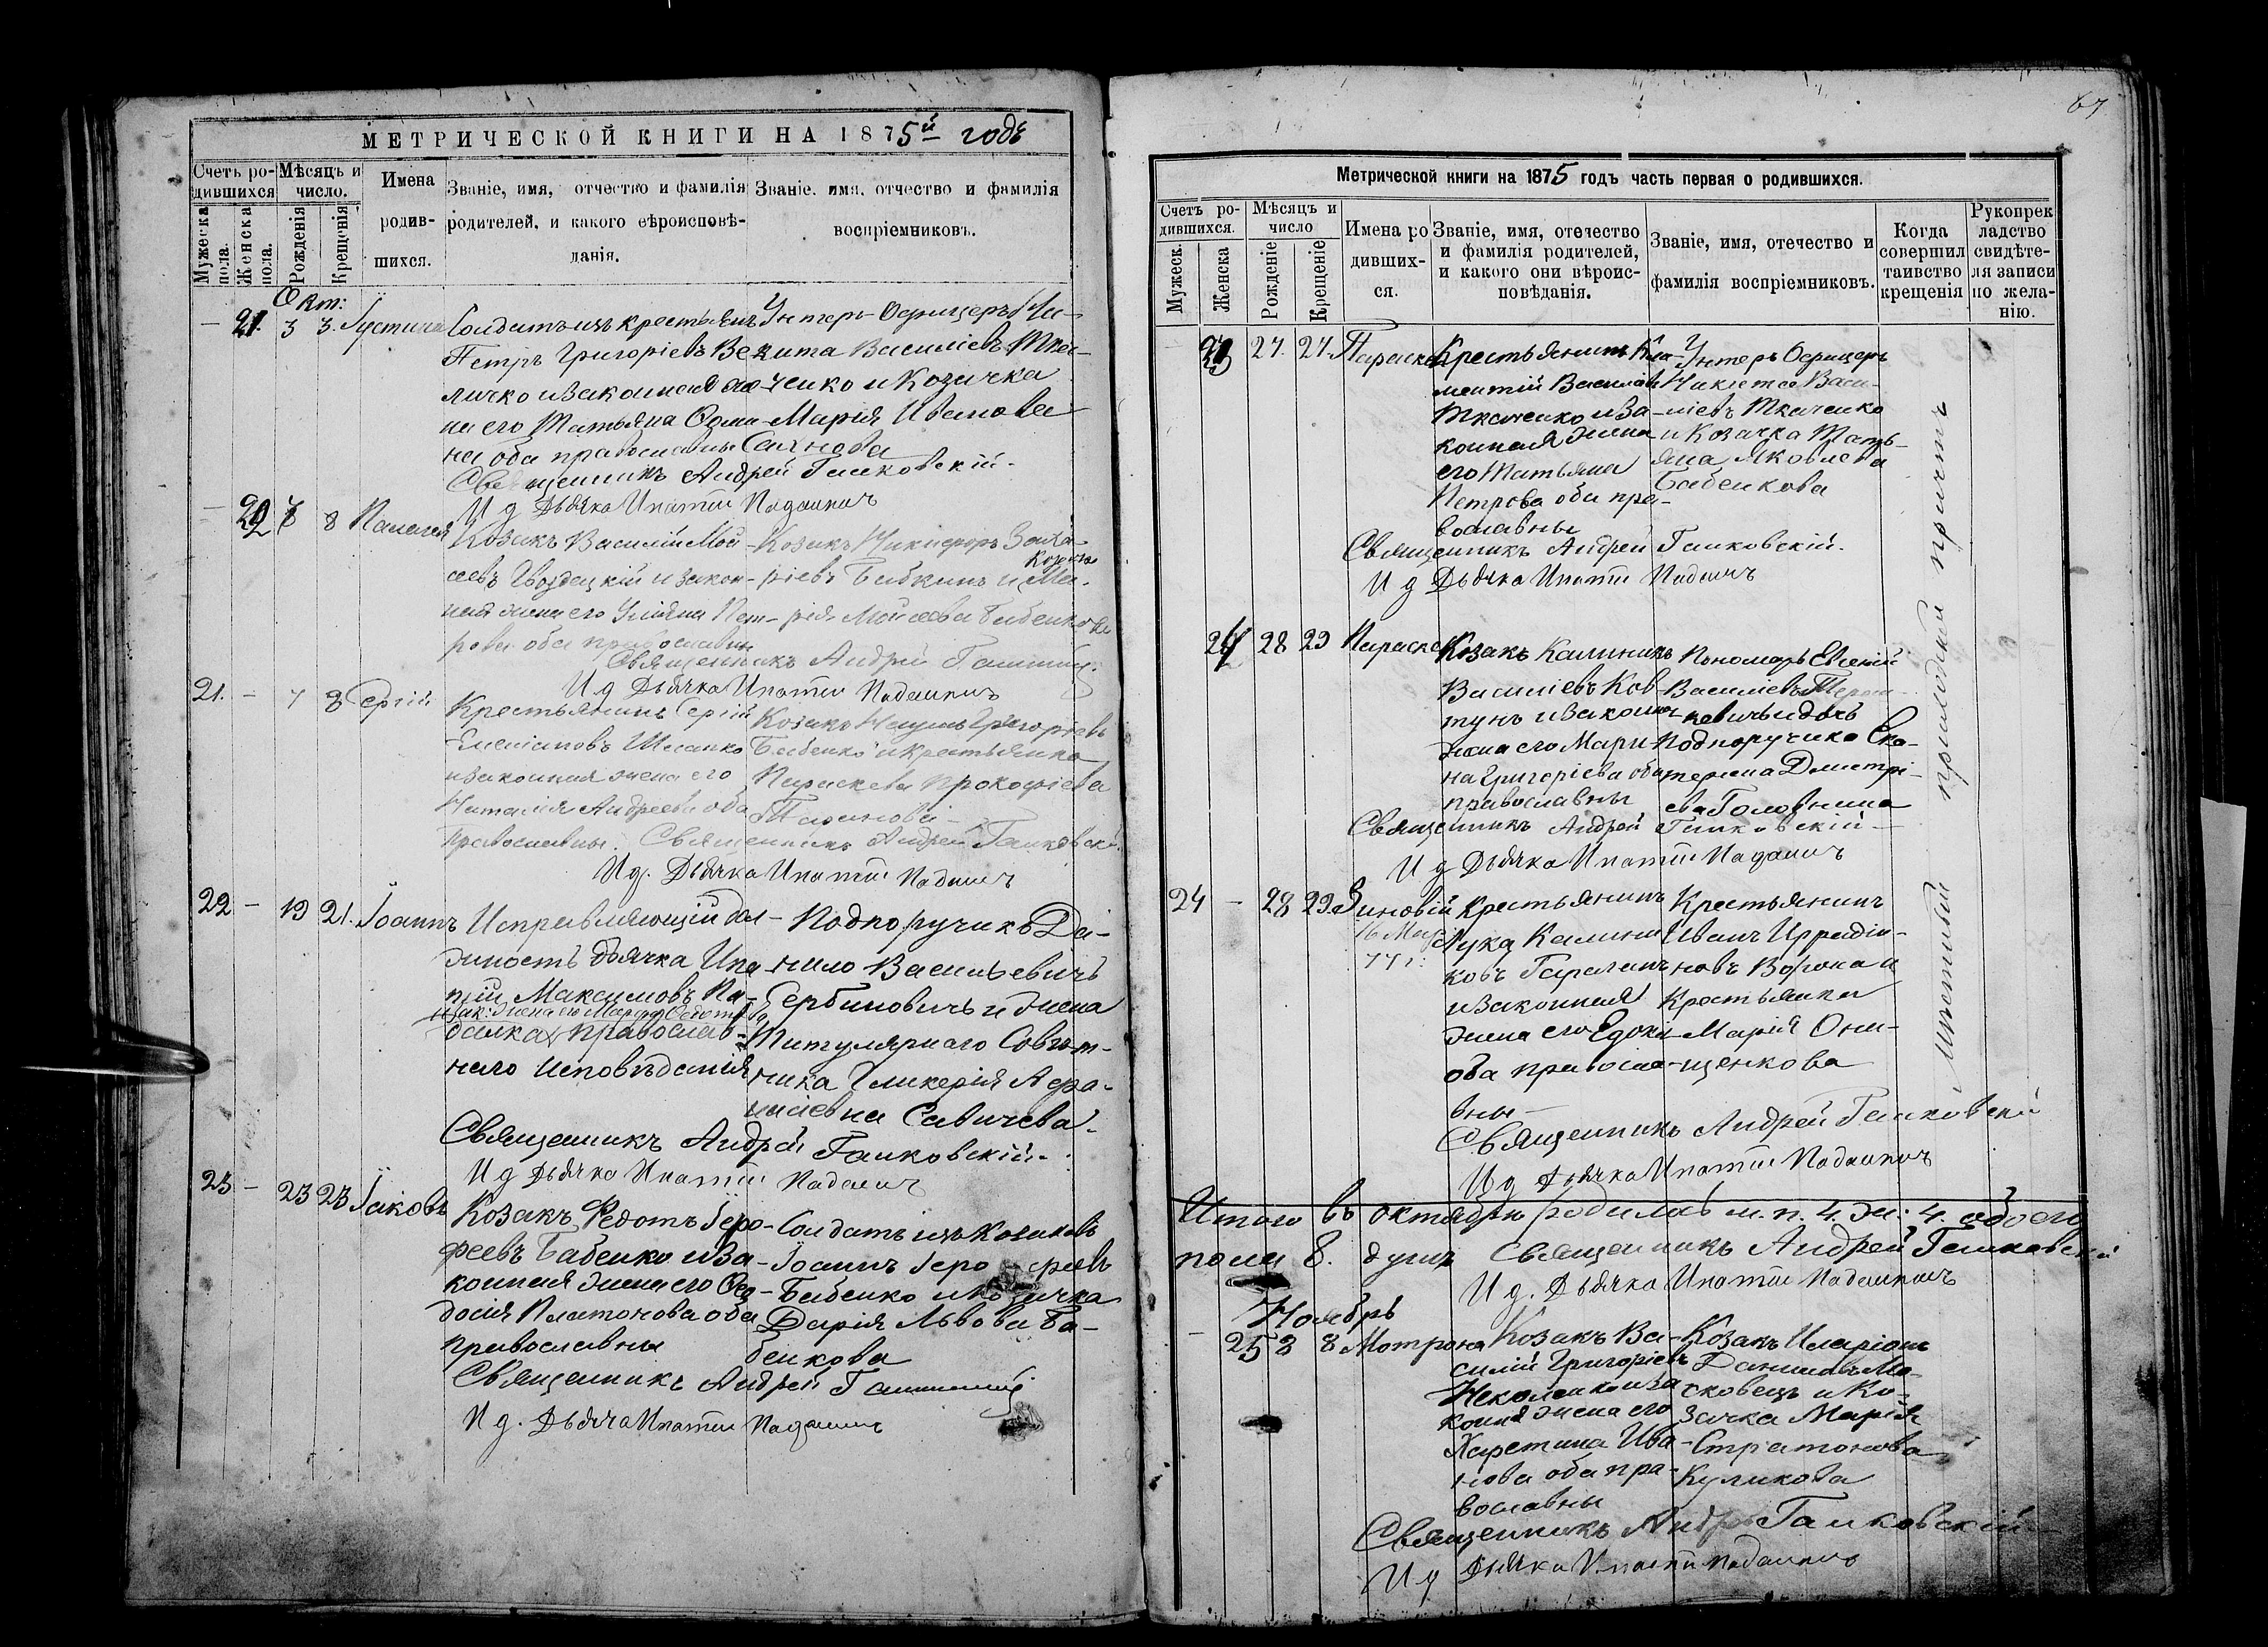 МЕТРИЧЕСКОЙ КНИГИ НА 1875й годъ
Счетъ родившихся
Мѣсяцъ и число.
Имена родившихся.
Званіе, имя, отчество и фамилія родителей, и какого вѣроисповѣданія.
Званіе, имя, отчество и фамилія воспріемниковъ.
Мужеска пола.
Женска пола.
Рожденія
Крещенія
Окт:
— 21. 3 3. Іустина
Солдатъ изъ крестьянъ
Петръ Григоріевъ Ве-
личко и законная же-
на его Татьяна Ѳоми-
на оба православны
Унтеръ-Офицеръ Ни-
кита Василіевъ Ткач-
ченко и Козачка
Марія Иванова
Священникъ Андрей Ганковскій.
И д Дьячка Ипатій Падалка
— 22 8 Палагея
Козакъ Василій Мой-
сеевъ Гвоздецкій и закон-
ная жена его Уліяна Пет-
рова оба православны
Козакъ Никифоръ Заха-
ріевъ Бабкинъ и Козачка Ма-
рія Мойсеева Бабенкова
Священникъ Андрей
И д Дьячка Ипатій
21. — 7 8 Сергій
Крестьянинъ Сергій
Емеліановъ Шпанко
и законная жена его
Наталія Андреева оба
православны.
Козакъ Наумъ Григоріевъ
Бабенко и крестьянка
Параскева Прокофіева
Священникъ Андрей Ганковскій
И д. Дьячка Ипатій
22 — 19 21. Іоаннъ
Исправляющій дол-
жность дьячка Ипа-
тій Максимовъ Па-
и зак: жена его Марфа Федотова
далка православ-
наго исповѣданія
Подпоручикъ Да-
нило Васильевичъ
Сербиновичъ и жена
Титулярнаго Совѣт-
ника Гликерія Афа-
насіевна Савичева.
Священникъ Андрей Ганковскій.
И д Дьячка Ипатій
23 — 23 23 Іаковъ
Козакъ Федотъ Іеро-
феевъ Бабенко и за-
конная жена его Фео-
досія Платонова оба
православны
Солдатъ изъ Козаковъ
Іоаннъ Іерофеевъ
Бабенко и Козачка
Дарія Львова Ба-
бенкова
Священникъ Андрей
И д. Дьячка Ипатій
67
Метрической книги на 1875 годъ часть первая о родившихся.
Счетъ родившихся.
Мѣсяцъ и число
Имена родившихся.
Званіе, имя, отечество и фамилія родителей, и какого они вѣроисповѣданія.
Званіе, имя, отечество и фамилія воспріемниковъ.
Когда совершил таивство крещенія
Рукопрекладство свидѣтеля записи по желанію.
Мужеск.
Женска
Рожденіе
Крещеніе
— 23 27. 27. Параскева
Крестьянинъ Кли-
ментій Василіевъ
Ткаченко и за-
конная жена
его Татьяна
Петрова оба пра-
вославны
Унтеръ Офицеръ
Никита Васи-
ліевъ Ткаченко
и Козачка Тать-
яна Яковлева
Бабенкова
Священникъ Андрей Ганковскій.
И д Дьячка Ипатій
24 28 29 Параскева
Козакъ Калиникъ
Василіевъ Ков-
тунъ и законная
жена его Мари-
на Григоріева оба
православны
Пономарь Евгеній
Василіевъ
и дочь
подпоручика Ека-
терина Дмитрі-
ева Головнина
Священникъ Андрей Ганковскій
И д Дьячка Ипатій
24 — 28 29. Зиновій
Крестьянинъ
Лука Калини-
ковъ
и законная
жена его Едоки
оба правосла-
вны —
Крестьянинъ
Иванъ Иродіо-
новъ Ворона и
Крестьянка
Марія Они-
щенкова
Священникъ Андрей Ганковскій
И д Дьячка Ипатій
Мѣстный приходскій причтъ
Итого въ октябрѣ родилось м. п. 4. ж: 4. обоего
пола 8. душъ Священникъ Андрей Ганковскій
И д. Дьячка Ипатій
Ноябрь
— 25 8 8 Мотрона
Козакъ Ва-
силій Григоріевъ
и за-
конная жена его
Харетина Ива-
нова оба пра-
вославны
Козакъ Иларіонъ
Даниловъ Мо-
сковецъ и Ко-
зачка Марія
Стратонова
Куликова
Священникъ Андрей Ганковскій
И д Дьячка Ипатій